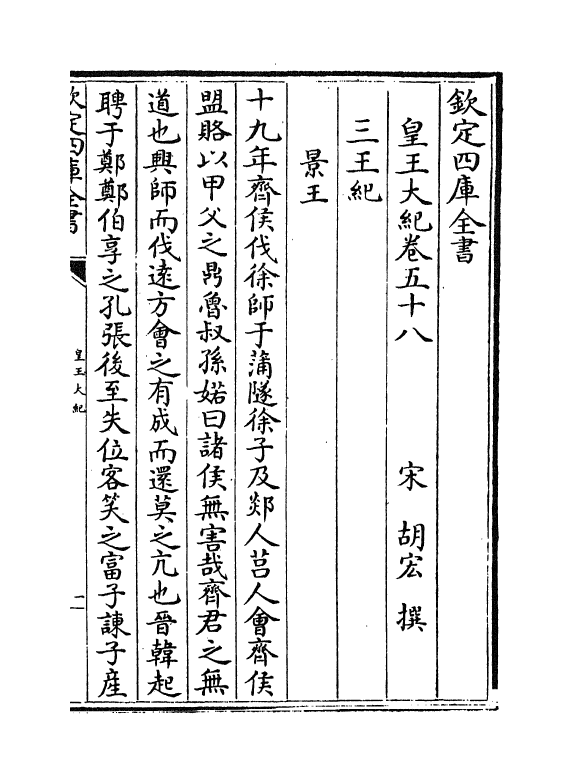 欽定四庫全書
皇王大紀卷五十八　　　宋　胡宏　撰
三王紀
景王
十九年齊侯伐徐師于蒲隧徐子及郯人莒人會齊侯
盟賂以甲父之鼎魯叔孫婼曰諸侯無害哉齊君之無
道也興師而伐遠方會之有成而還莫之亢也晉韓起
聘于鄭鄭伯享之孔張後至失位客笑之富子諫子産
欽定四庫全書
皇王大紀